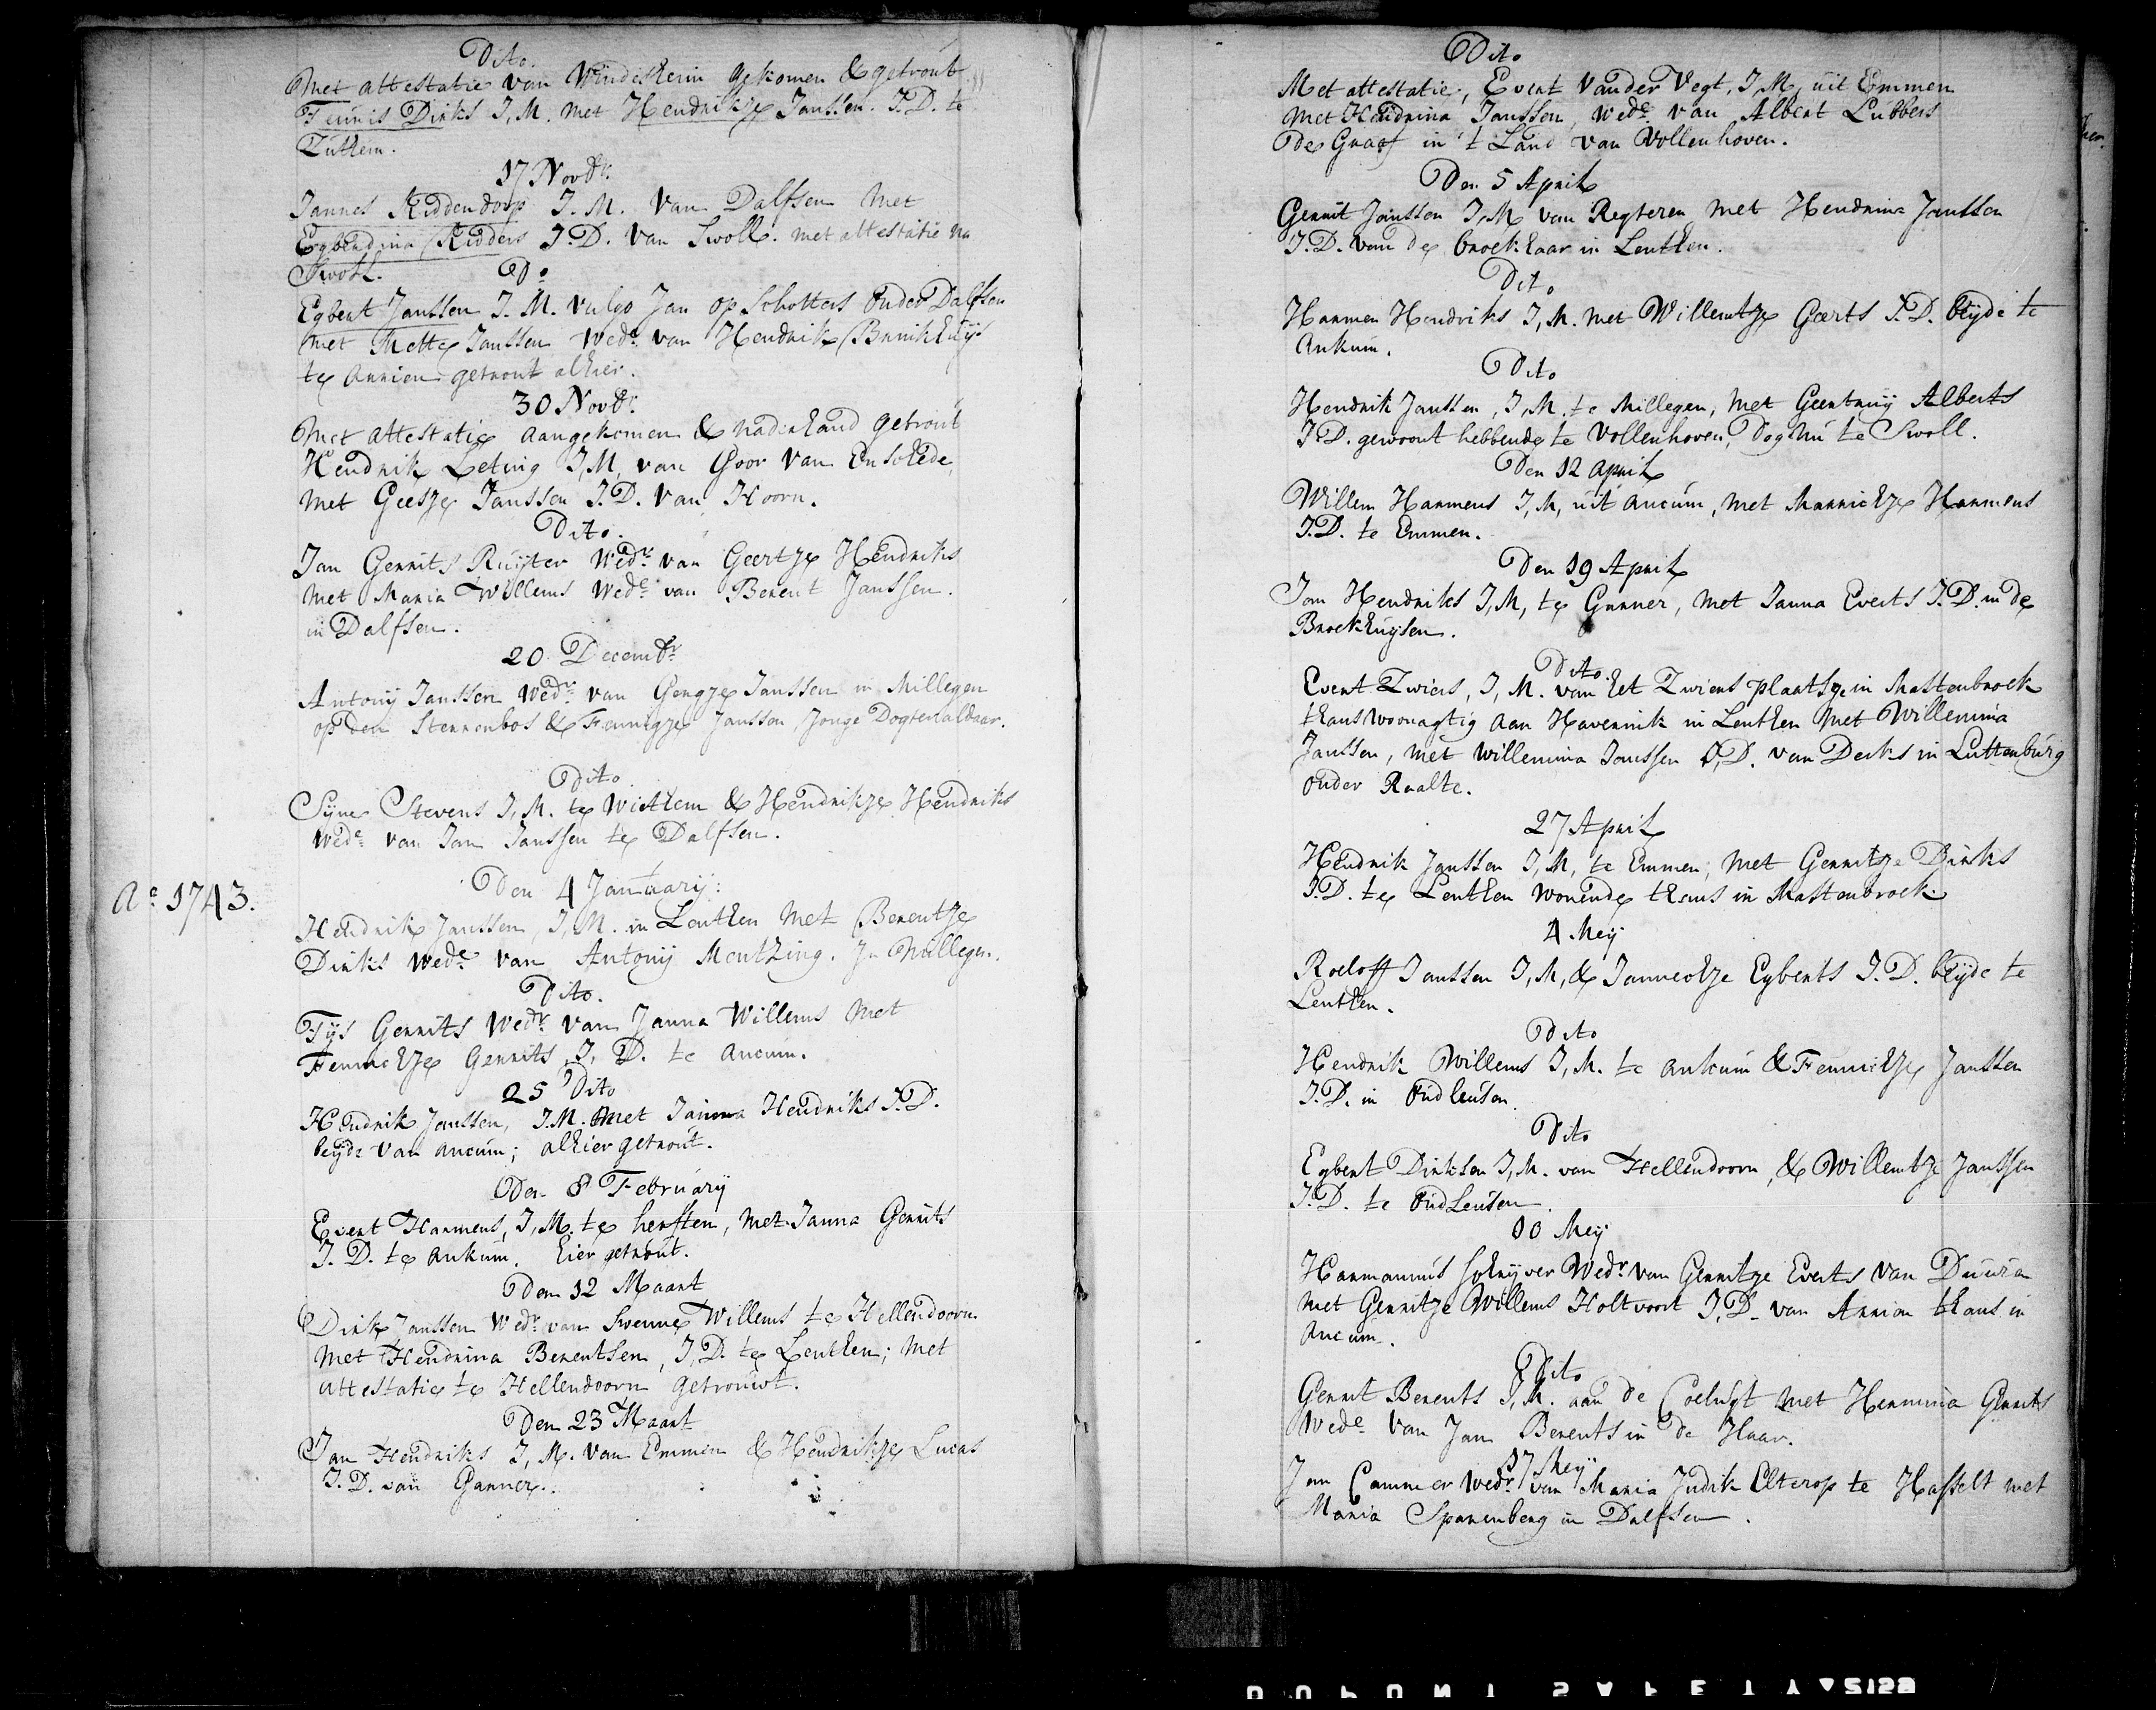 Dito.
Met attestatie van Windesheim gekomen & getrout
Teunis Dirks J, M. met Hendrikje Janssen. J.D. te
Zuthem.
17 Novbr.
Jannes Riddendorp J. M. van Dalfsen met
Egberdina Ridders J.D. van Swoll. met attestatie na
Swoll.
Do
Egbert Janssen J. M. vulgo Jan op Schotters onder Dalfsen
met Mette Janssen Wede. van Hendrik Brinkhuijs
te Annien getrout alhier.
30 Novbr.
Met attestatie aangekomen & naderhand getrout
Hendrik Leting J, M, van Goor van Enschede,
met Geesje Janssen J.D. van Hoorn.
Dito.
Jan Gerrits Ruijter Wedr. van Geertje Hendriks
met Maria Willems Wede. van Berent Janssen.
in Dalfsen.
20 Decembr.
Antonij Janssen Wedr. van Gengje Janssen in Millegen
op den Sterrenbos & Fennigje Janssen Jonge Dogter aldaar.
Dito
Syner Stevens J, M. te Withem & Hendrikje Hendriks
Wede. van Jan Janssen te Dalfsen.
Den 4 Januarij:
Ao. 1743.
Hendrik Janssen, J, M. in Lenthen met Berentje
Dirks Wede. van Antonij Mentzing. In Millegen.
Dito.
Tijs Gerrits Wedr. van Janna Willems met
Fennichje Gerrits, J, D. te Ancum.
25 Dito
Hendrik Janssen, J.M. met Janna Hendriks J.D.
beijde van Ancum; alhier getrout.
Den 8 February
Evert Harmens, J, M. te herften, met Janna Gerrits
J. D. te Ankum. hier getrout.
Den 12 Maart
Dirk Janssen Wedr. van Swenne Willems te Hellendoorn
met Hendrina Berentsen, J, D. te Lenthen; met
attestatie te Hellendoorn getrouwt.
Den 23 Maart
Jan Hendriks J, M. van Emmen & Hendrikje Lucas
J. D. van Ganner.
Dito
Met attestatie, Evert vander Vegt, J, M, uit Emmen
met Hendrina Janssen, Wede. van Albert Lubbers
de Graaf in 't Land van Vollenhoven.
Den 5 April
Gerrit Janssen J, M van Regteren met Hendrina Janssen
J. D. van de broekhaar in Lenthen.
Dito
Harmen Hendriks J, M. met Willemtje Geerts J. D. beyde te
Ankum.
Dito
Hendrik Janssen, J, M. te Millegen, met Geertruij Alberts
J. D. gewoont hebbende te Vollenhoven, dog nu te Swoll.
Den 12 april
Willem Harmens J, M, uit Ancum, met Marrichje Harmens
J. D. te Emmen.
Den 19 April
Jan Hendriks J, M, te Ganner, met Janna Everts J. D. in de
Broekhuijsen.
Dito.
Evert Zwiers, J, M. van het Zwiers plaatsje in Mastenbroek
thans woonagtig aan Haverrink in Lenthen met Willemina
Janssen, met Willemina Janssen J, D. van Derks in Luttenburg
onder Raalte.
27 April
Hendrik Janssen J, M, te Emmen; met Gerritje Dirks
J. D. te Lenthen wonende thans in Mastenbroek
4 Meij
Roeloff Janssen J, M, & Janneohje Egberts J. D. beyde te
Lenthen.
Dito
Hendrik Willems J, M. te ankum & Fennichje Janssen
J. D. in Oudleusen.
Dito
Egbert Dirksen J, M. van Hellendoorn, & Willemtje Janssen
J. D. te Oudleusen.
10 Meij
Harmannus Schryver Wedr. van Gerritje Everts van Duuren
met Gerritje Willems Holtvoort J, D. van Annien thans in
Ancum.
Dito
Gerrit Berents J, M. aan de Poelugt met Hermina Gerrits
Wede. van Jan Berents in de Haar.
17 Meij
Jan Cammer Wedr. van Maria Judik Elterop te Hasselt met
Maria Sparenberg in Dalfsen.